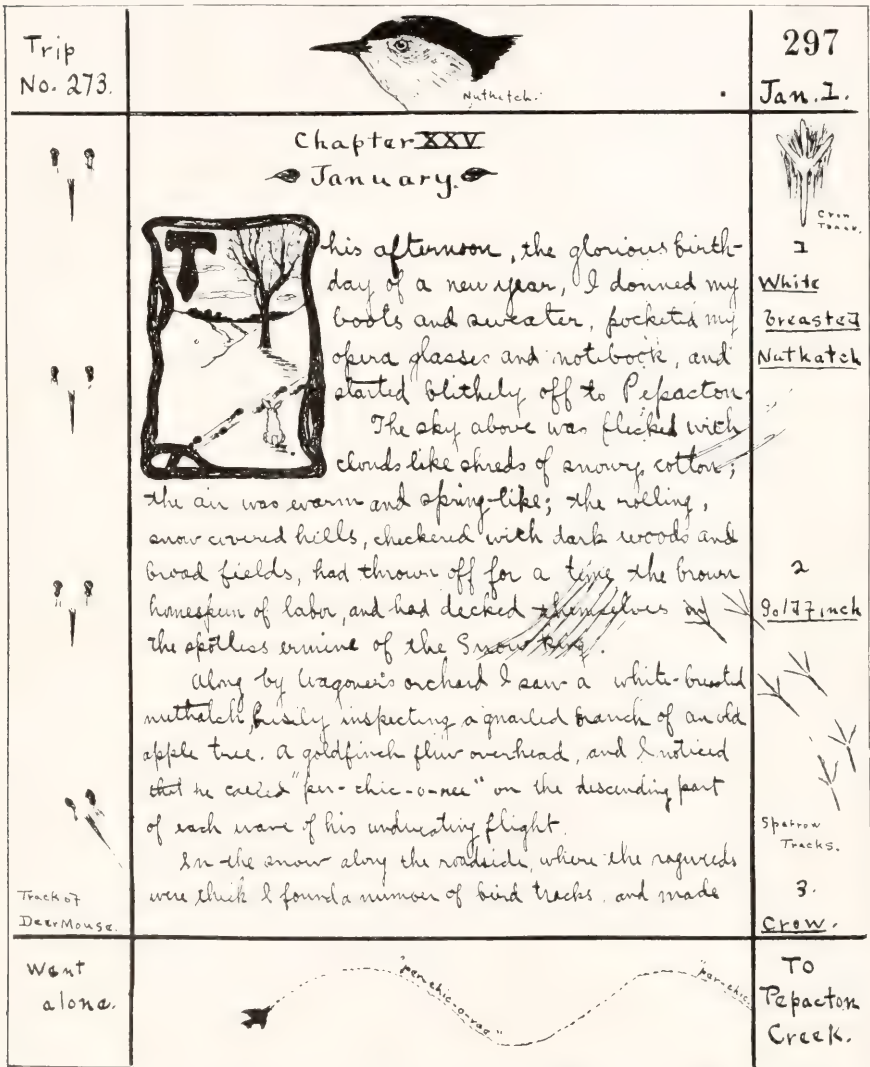 Trip
No. 273.
Nuthatch.
297
Jan. 1.
Chapter XXV
January.
This afternoon, the glorious birth-
day of a new year, I donned my
boots and sweater, pocketed my
opera glasses and notebook, and
started blithely off to Pepacton.
The sky above was flecked with
clouds like shreds of snowy cotton;
the air was warm and spring-like; the rolling,
snow covered hills, checkered with dark woods and
broad fields, had thrown off for a time the brown
homespun of labor, and had decked themselves in
the spotless ermine of the Snow King.
Along by Wagoner's orchard I saw a white-breasted
nuthatch, busily inspecting a gnarled branch of an old
apple tree. A goldfinch flew overhead, and I noticed
that he called "per-chic-o-ree" on the descending part
of each wave of his undulating flight.
In the snow along the roadside, where the ragweeds
were thick I found a number of bird tracks, and made
Crow
Track.
1
White
breasted
Nuthatch
2
Goldfinch
Sparrow
Tracks.
3.
Crow.
Track of
Deer Mouse.
Went
alone.
"per-chic-o-ree"
"per-chic-
To
Pepacton
Creek.